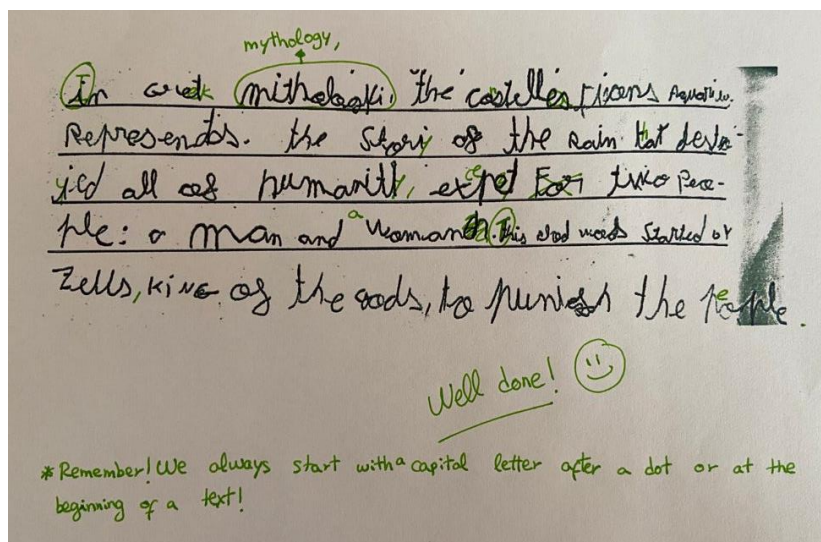 mythology,
In Greek mithologiki, the costelles Pisces Aquariu.
Represendts. the Story of the Rain that destro-
yed all of humanity, except For two Peo-
ple: a man and a woman. This was Started by
Zells, KiNG of the gods, to punish the people.
Well done!
*Remember! We always start with a capital letter after a dot or at the
beginning of a text!